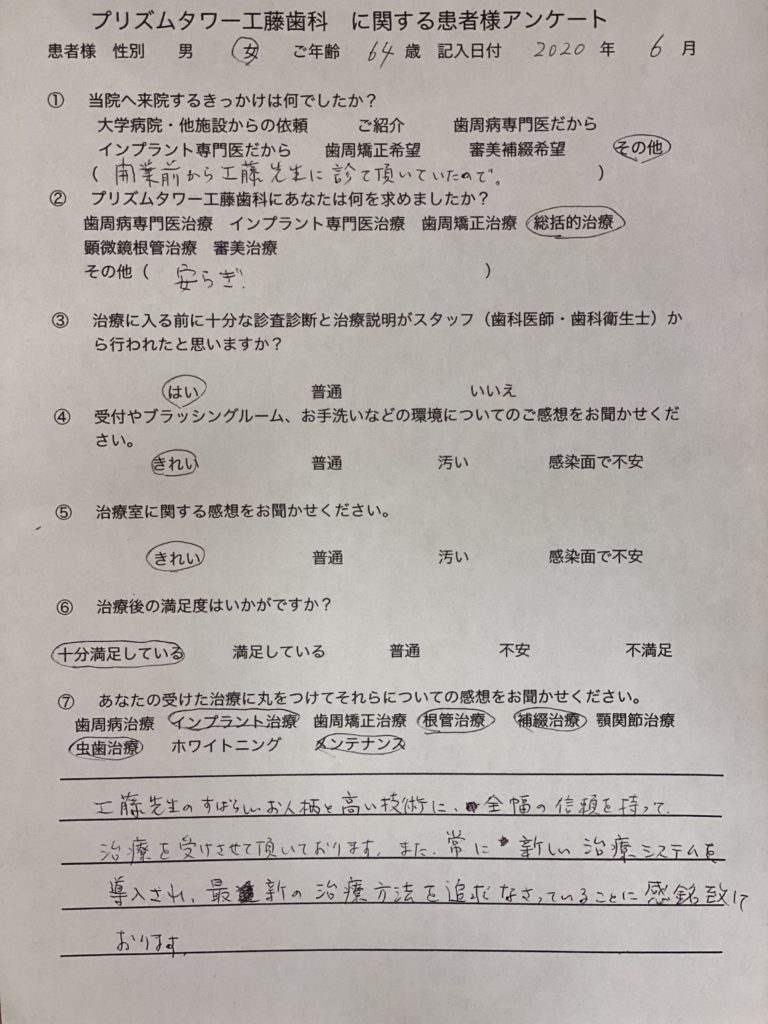 プリズムタワー工藤歯科　に関する患者様アンケート
患者様　性別　男　女　ご年齢　64 歳　記入日付　2020 年　6 月
①　当院へ来院するきっかけは何でしたか？
大学病院・他施設からの依頼　ご紹介　歯周病専門医だから
インプラント専門医だから　歯周矯正希望　審美補綴希望　その他
（ 開業前から工藤先生に診て頂いていたので。 ）
②　プリズムタワー工藤歯科にあなたは何を求めましたか？
歯周病専門医治療　インプラント専門医治療　歯周矯正治療　総括的治療
顕微鏡根管治療　審美治療
その他（ 安らぎ. ）
③　治療に入る前に十分な診査診断と治療説明がスタッフ（歯科医師・歯科衛生士）か
ら行われたと思いますか？
はい　普通　いいえ
④　受付やブラッシングルーム、お手洗いなどの環境についてのご感想をお聞かせくだ
さい。
きれい　普通　汚い　感染面で不安
⑤　治療室に関する感想をお聞かせください。
きれい　普通　汚い　感染面で不安
⑥　治療後の満足度はいかがですか？
十分満足している　満足している　普通　不安　不満足
⑦　あなたの受けた治療に丸をつけてそれらについての感想をお聞かせください。
歯周病治療　インプラント治療　歯周矯正治療　根管治療　補綴治療　顎関節治療
虫歯治療　ホワイトニング　メンテナンス
工藤先生のすばらしいお人柄と高い技術に、全幅の信頼を持って
治療を受けさせて頂いております。また、常に新しい治療システムを
導入され、最新の治療方法を追求なさっていることに感銘致して
おります。